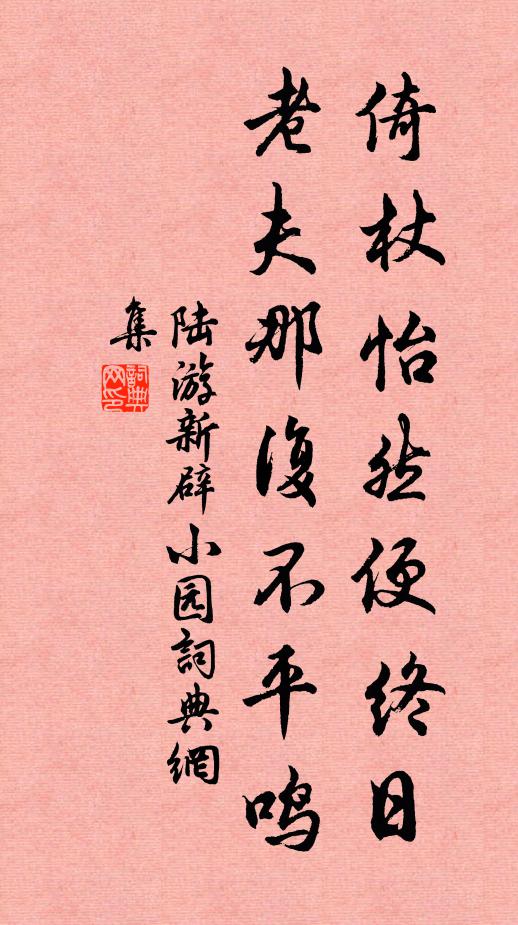 倚杖怡然便终日
老夫那復不平鸣
陆游新辟小园詞典網
集
詞典
网印